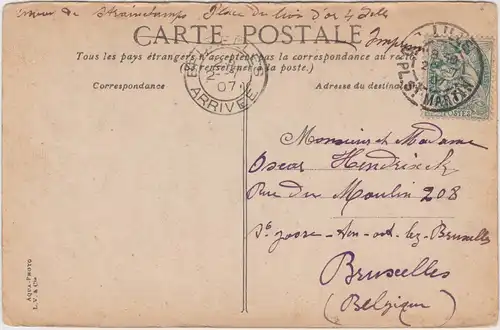 Place du Lion d'or 4 Lille
CARTE POSTALE
Tous les pays étrangers n'acceptent pas la correspondance au recto
(Se renseigner à la poste.)
Correspondance
Adresse du destinataire
ARRIVÉE
07
LILLE
PL. ST MARTIN
POSTES
Monsieur et Madame
Oscar Hendrickx
Rue du Moulin 208
St josse-ten-
Bruxelles
Bruxelles
(Belgique)
AQUA-PHOTO
L. V. & Cie